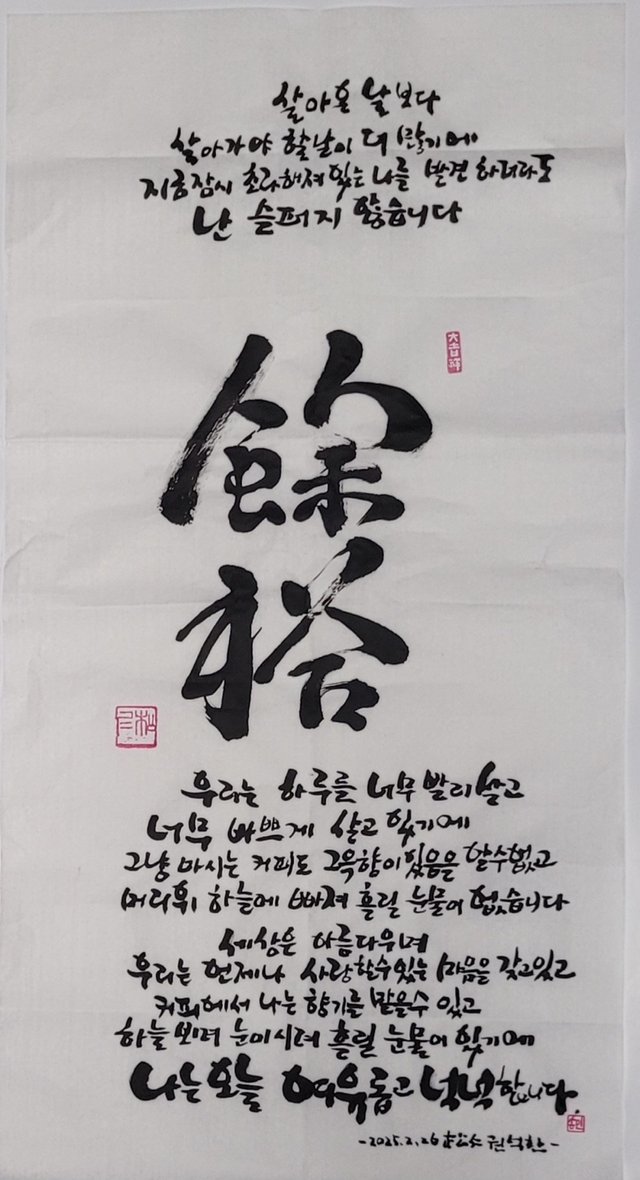 살아온 날보다
살아가야 할날이 더 많기에
지금잠시 초라해져있는 나를 발견하더라도
난 슬퍼지 않습니다
大吉祥
餘
裕
우리는 하루를 너무 빨리 살고
너무 바쁘게 살고 있기에
그냥 마시는 커피도 그윽향이있음을 알수없고
머리위 하늘에 빠져 흘릴 눈물이 없습니다
세상은 아름다우며
우리는 언제나 사랑할수있는 마음을 갖고있고
커피에서 나는 향기를 맡을수 있고
하늘 보며 눈이시려 흘릴 눈물이 있기에
나는오늘 여유롭고 넉넉합니다.
-2025.2.26 권석한-